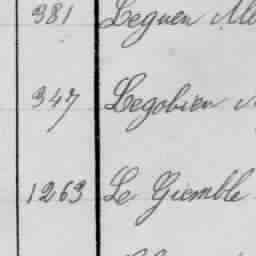 981 Leguen
347 Legobien
1263 Le Gremble